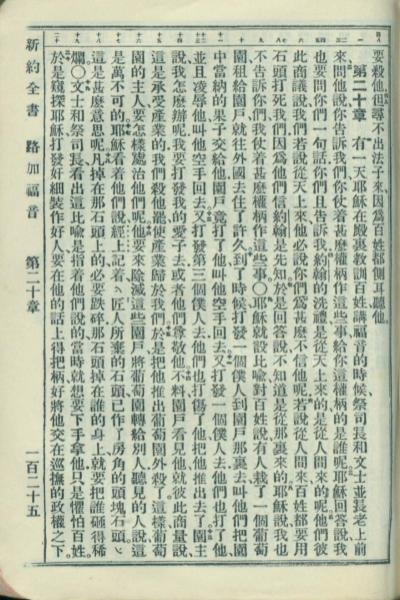 要殺他但尋不出法子來因爲百姓都側耳聽他。
第二十章 有一天耶穌在殿裏教訓百姓講福音的時候祭司長和文士並長老上前
來問他說你告訴我們你仗着甚麼權柄作這些事給你這權柄的是誰呢耶穌回答說我
也要問你們一句話你們且告訴我約翰的洗禮是從天上來的是從人間來的呢他們彼
此商議說我們若說從天上來他必說你們爲甚麼不信他呢若說從人間來百姓都要用
石頭打死我們因爲他們信約翰是先知於是回答說不知道是從那裏來的耶穌說我也
不告訴你們我仗着甚麼權柄作這些事○耶穌就設比喻對百姓說有人栽了一個葡萄
園租給園戶就往外國去住了許久到了時候打發一個僕人到園戶那裏去叫他們把園
中當納的果子交給他園戶竟打了他叫他空手回去又打發一個僕人去他們也打了他
並且凌辱他叫他空手回去又打發第三個僕人去他們也打傷了他把他推出去了園主
說我怎麼辦呢我要打發我的愛子去或者他們尊敬他不料園戶看見他就彼此商量說
這是承受產業的我們殺他罷使產業歸於我們於是把他推出葡萄園外殺了這樣葡萄
園的主人要怎樣處治他們呢他要來除滅這些園戶將葡萄園轉給別人聽見的人說這
是萬不可的耶穌看着他們說經上記着匠人所棄的石頭已作了房角的頭塊石頭
這是甚麼意思呢凡掉在那石頭上的必要跌碎那石頭掉在誰的身上就要把誰砸得稀
爛○文士和祭司長看出這比喻是指着他們說的當時就想要下手拿他只是懼怕百姓。
於是窺探耶穌打發奸細裝作好人要在他的話上得把柄好將他交在巡撫的政權之下。
新約全書 路加福音 第二十章 一百二十五